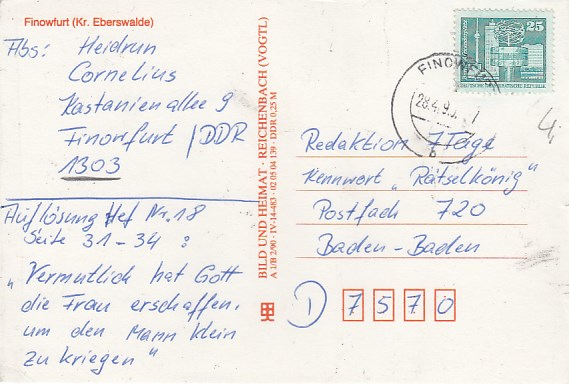 Finowfurt (Kr. Eberswalde)
Abs: Heidrun
Cornelius
Kastanienallee 9
Finowfurt / DDR
1303
Auflösung Hef Nr. 18
Seite 31-34 :
„Vermutlich hat Gott
die Frau erschaffen,
um den Mann klein
zu kriegen"
BILD UND HEIMAT · REICHENBACH (VOGTL)
A 1/B 2/90 · IV-14-483 · 02 05 04 139 · DDR 0,25 M
25
28.4.9
b
Redaktion 7 Tage
Kennwort „Rätselkönig"
Postfach 720
Baden-Baden
D 7570